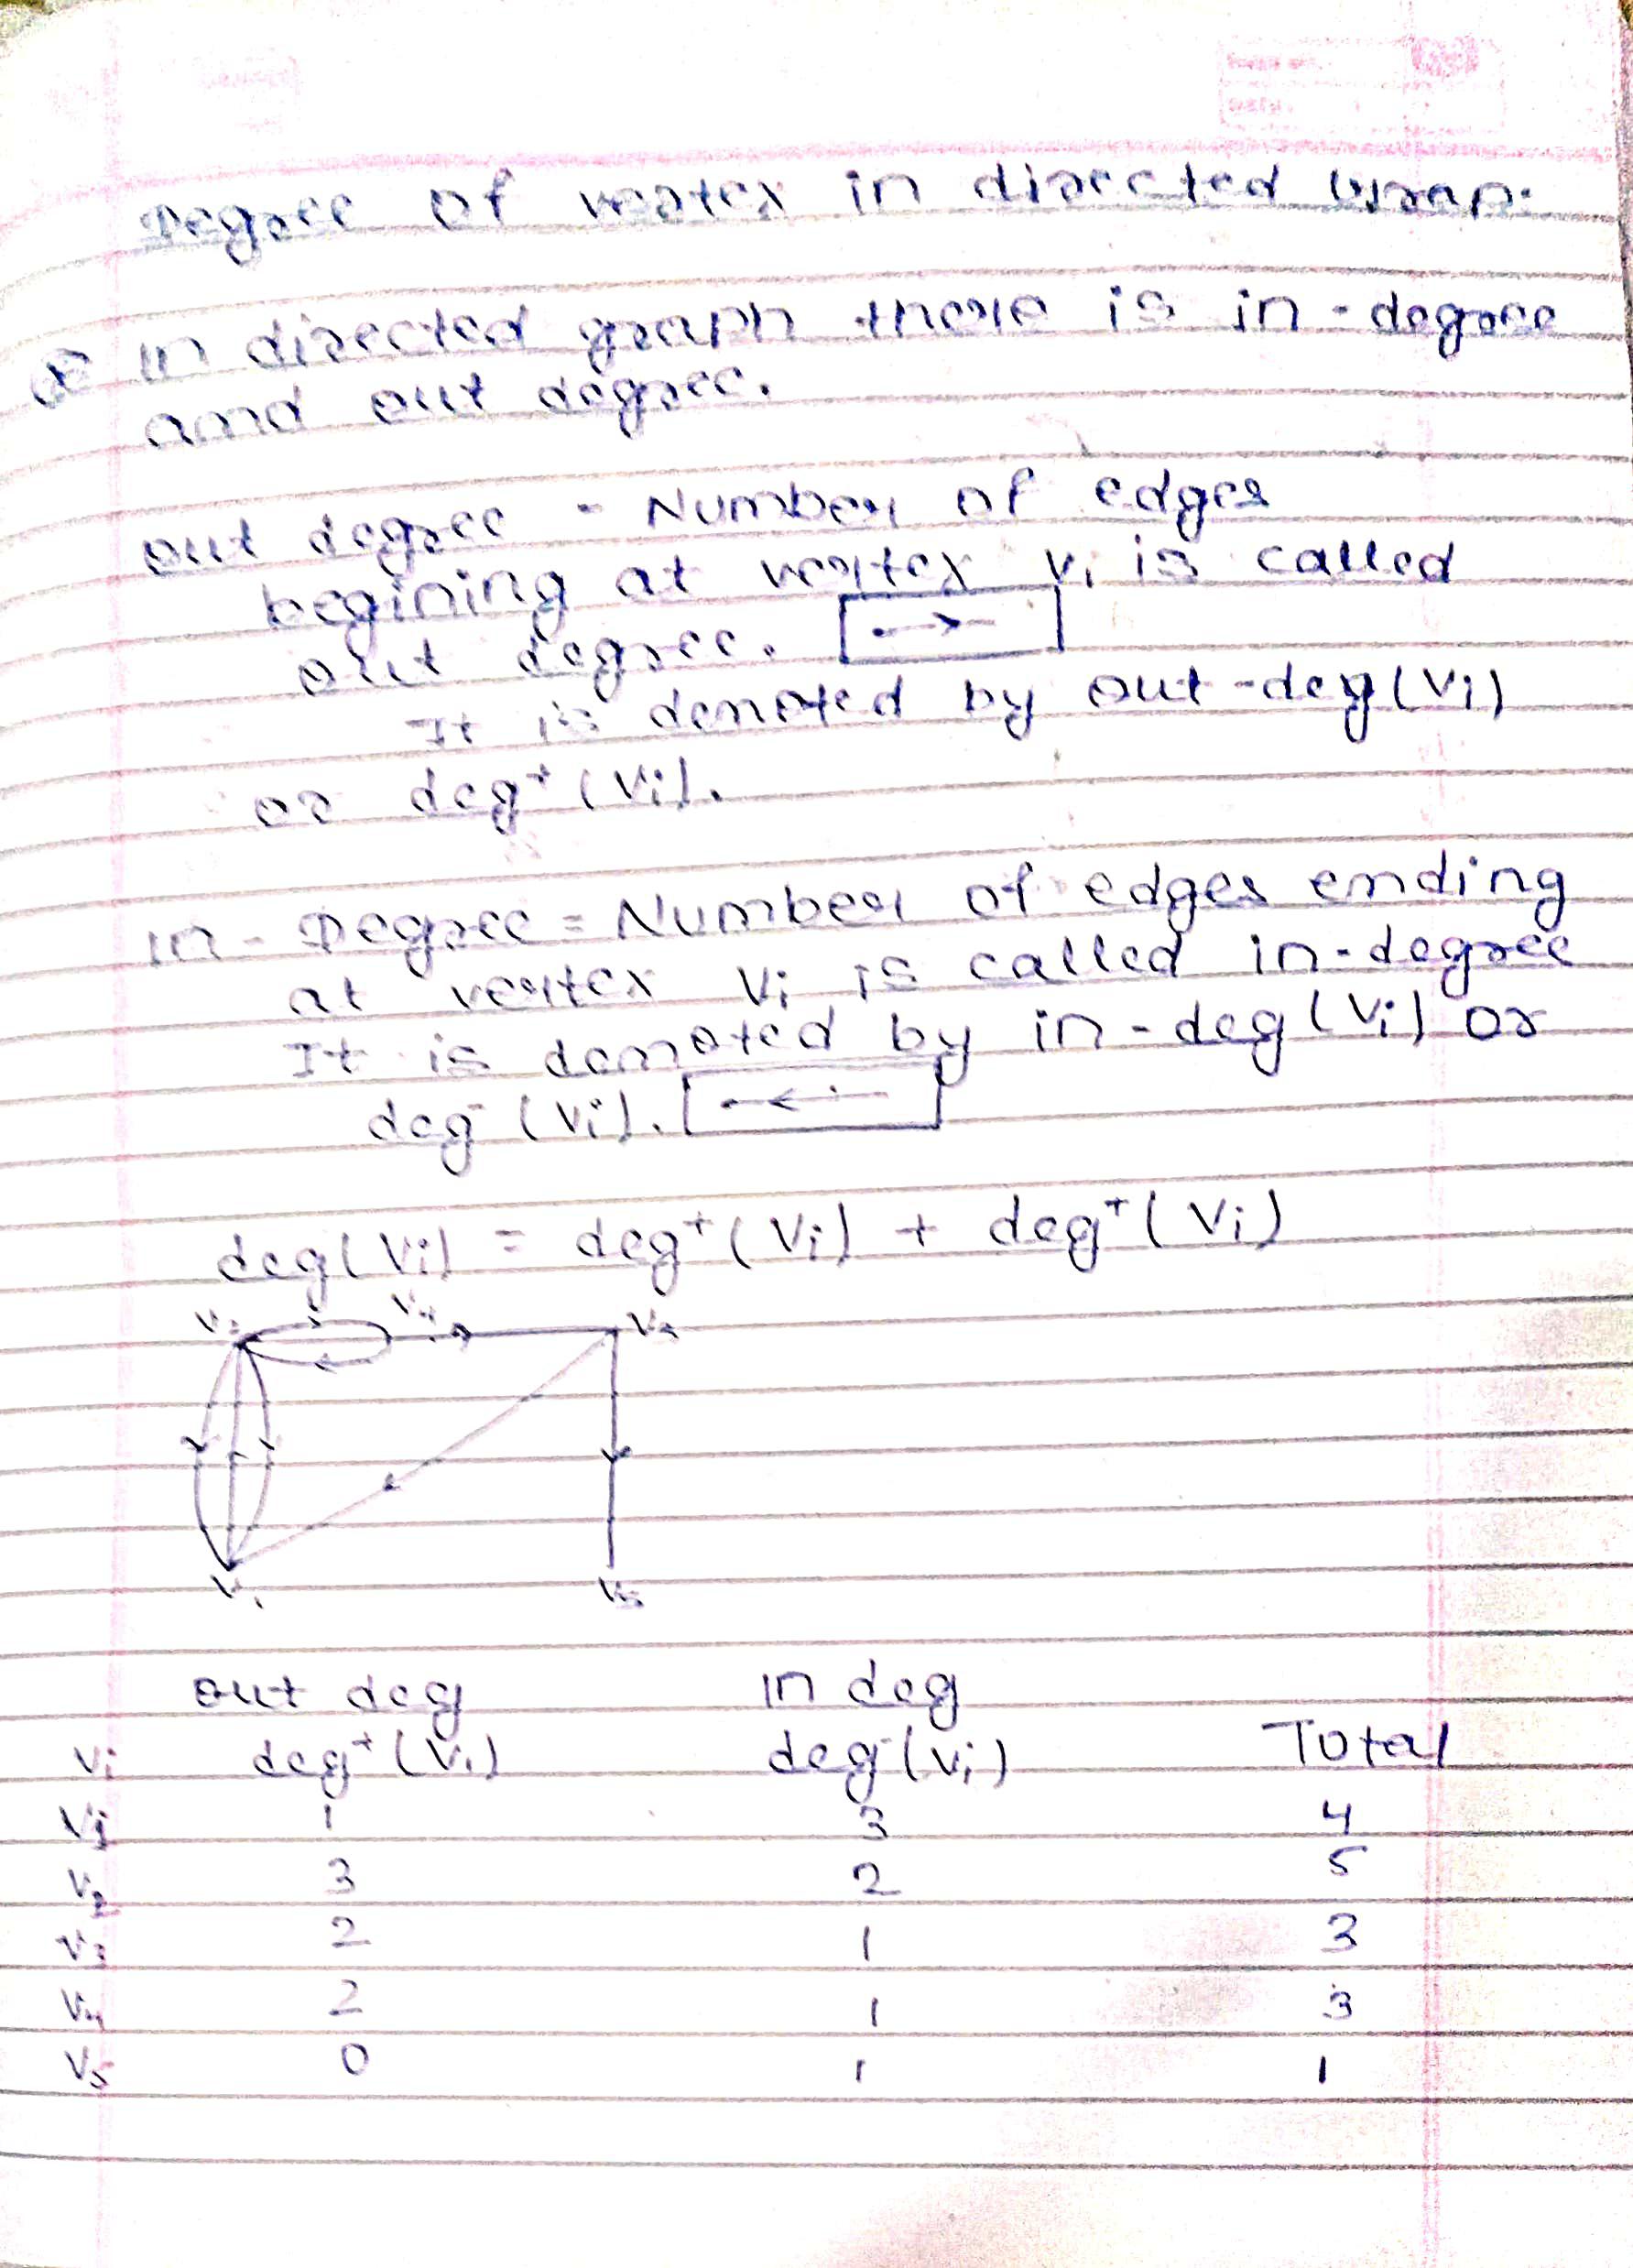 Degree of vertex in directed Grap.
In directed graph there is in-degree
and out degree.
out degree - Number of edges
begining at vertex Vi is called
out degree.
It is denoted by out-deg(Vi)
or deg⁺(Vi).
In-Degree = Number of edges ending
at vertex Vi is called in-degree
It is denoted by in-deg(Vi) or
deg⁻(Vi).
deg(Vi) = deg⁺(Vi) + deg⁺(Vi)
V₂ V₄ V₃
V₁ V₅
out deg In deg
Vi deg⁺(Vi) deg⁻(Vi) Total
V₁ 1 3 4
V₂ 3 2 5
V₃ 2 1 3
V₄ 2 1 3
V₅ 0 1 1